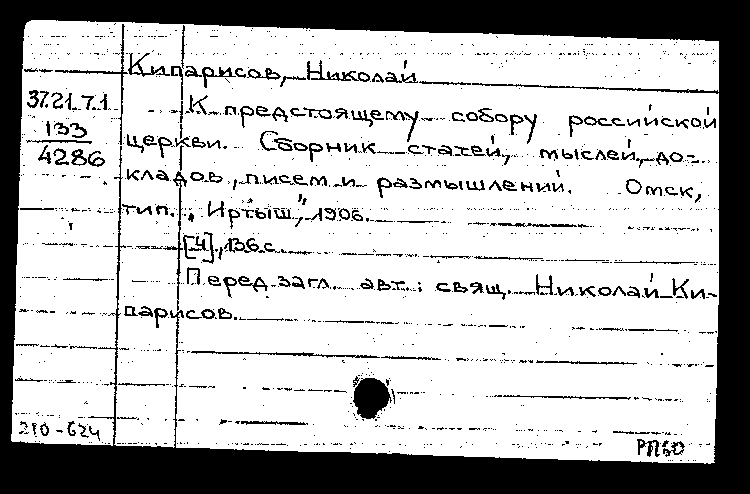 Кипарисов, Николай
37.21.7.1
133
4286
К предстоящему собору российской
церкви. Сборник статей, мыслей, до-
кладов, писем и размышлений. Омск,
тип. „Иртыш", 1906.
[4], 136 с.
Перед загл. авт.: свящ. Николай Ки-
парисов.
210-624